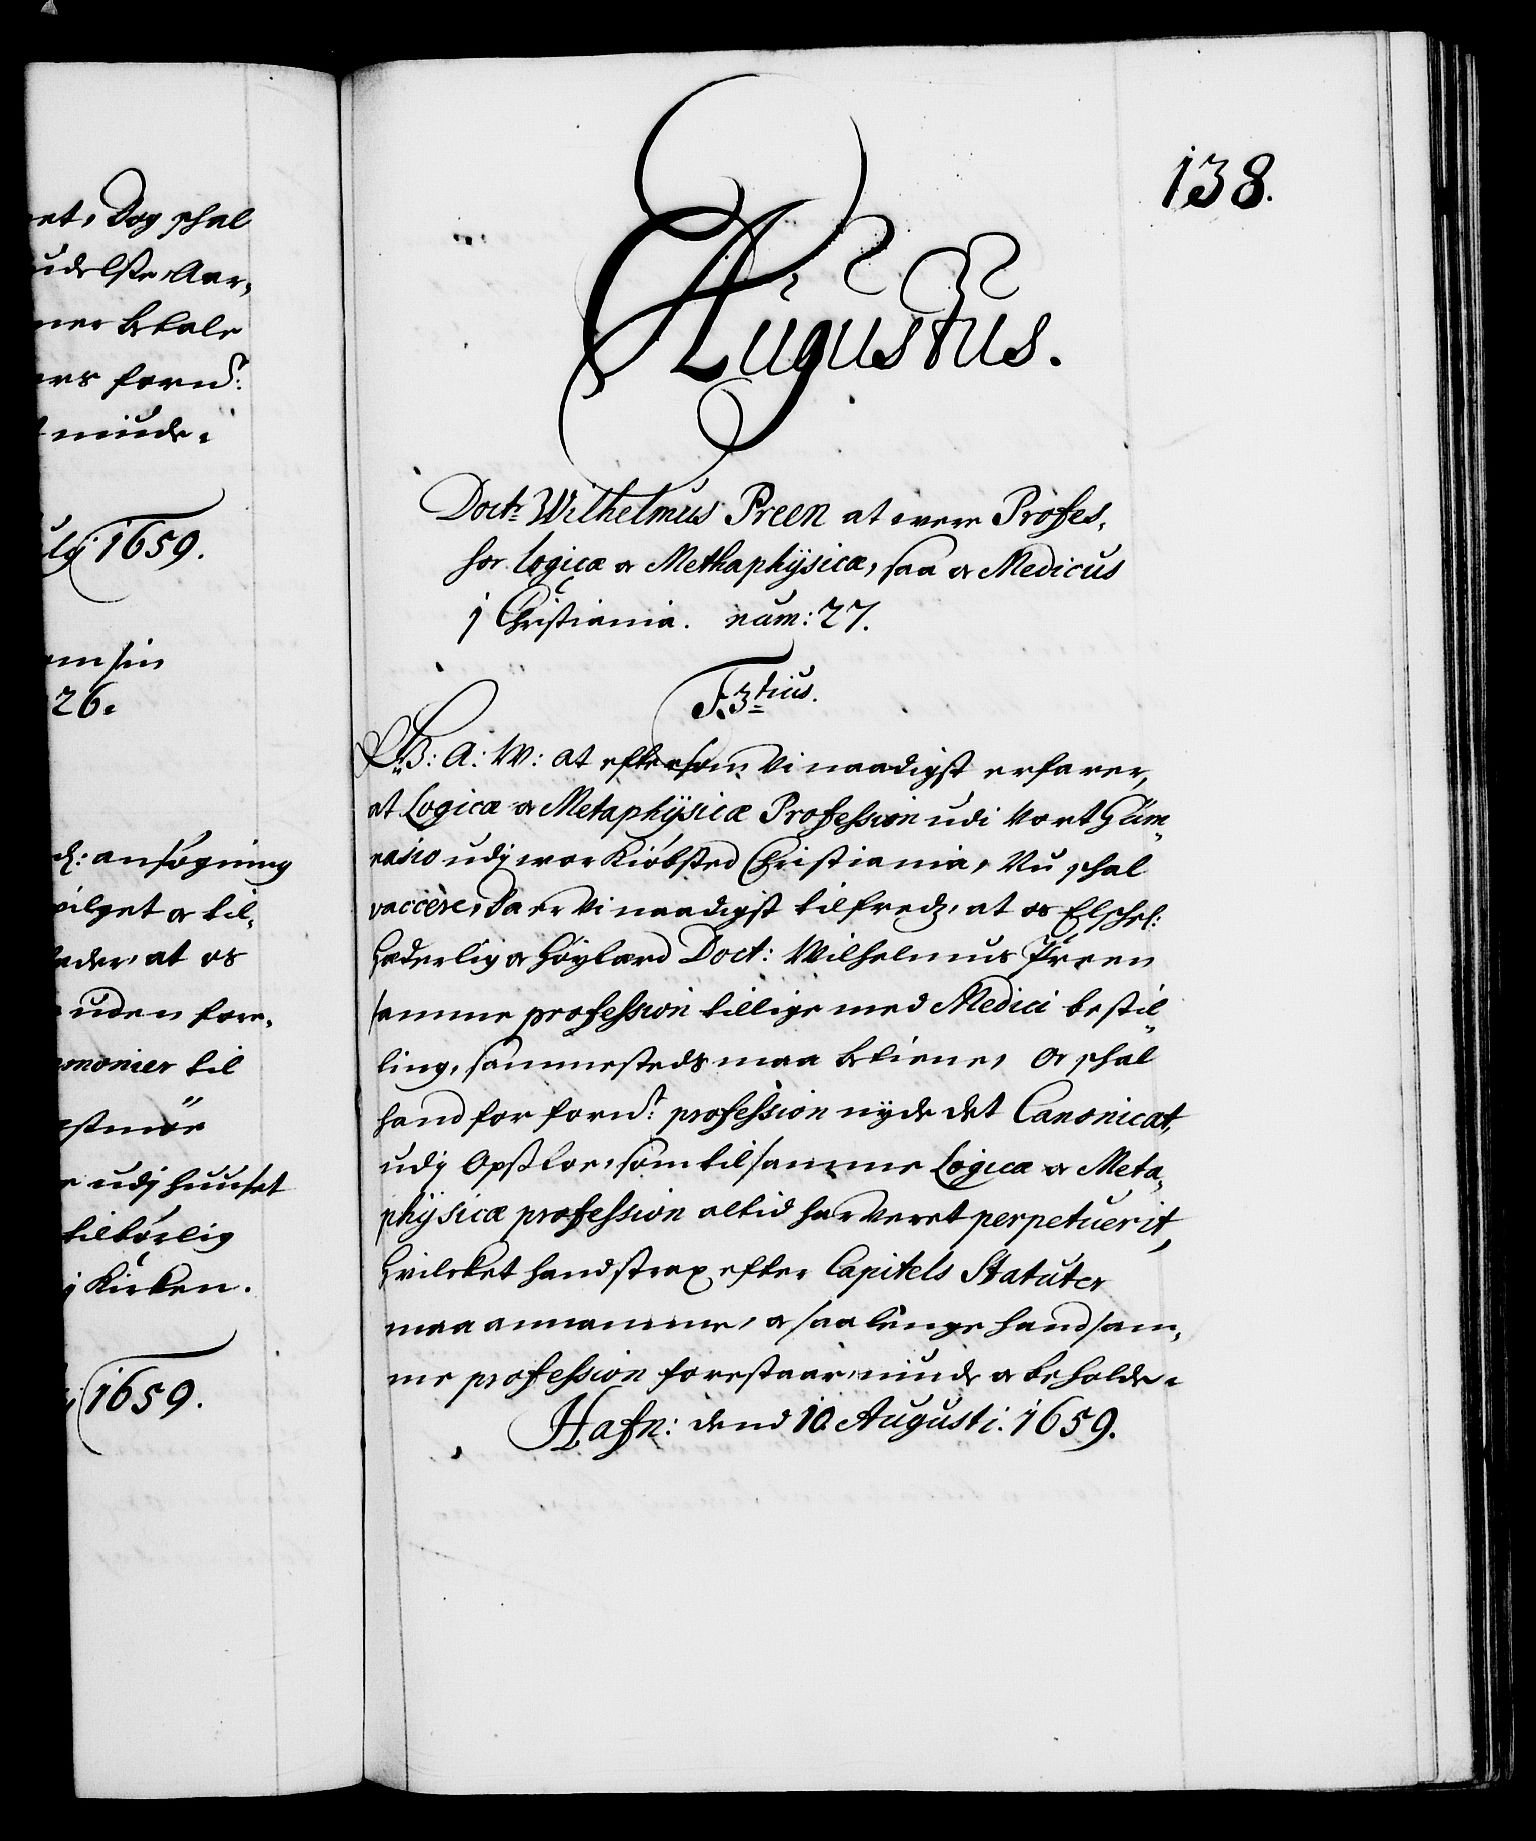 et, Dog schal
udelste Aar,
ner betale
ers fornᵈ:
niude.
ulij 1659.
em sin
26.
d: ansøgning
vilget oc til,
eder, at os
uden fore,
mmonier til
e udj huuset
tilbørlig
j Kircken.
1659.
138.
Augustus.
Doctr Wilhelmus Preen at were Profes,
sor Logicæ oc Methaphÿsicæ, saa oc Medicus
j Christiania. num: 27.
F. 3tius.
G. A: W: at eftersom Vi naadigst erfarer,
at Logicæ oc Metaphÿsicæ Profession udi Vort Güm
nasio udj wor Kiøbsted Christiania, Nu schal
vaccere, Da er Vi naadigst tilfredz, at os Elschel:
Hæderlig oc Høylærd Doct: Wilhelmus Preen
samme profession tillige med Medici bestil
ling, sammesteds maa betiene, Oc schal
hand for fornᵈ: profession nÿde det Canonicat,
udj Opsloe, som til samme Logicæ oc Meta,
phÿsicæ profession altid har Veret perpetuerit,
hvilcket hand strax efter Capitels Statuter
maa annamme, oc saa lenge hand sam,
me profession forestaar, niude oc beholde.
Hafn: dend 10. Augusti. 1659.